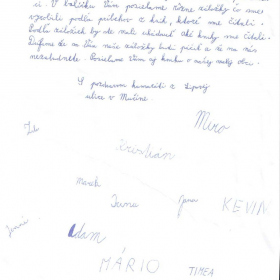 ú. V balíčku Vám posielame rôzne záložky čo sme
vyrobili podľa príbehov z kníh, ktoré sme čítali.
Podľa záložiek by ste mali uhádnuť aké knihy sme čítali.
Dúfame že sa Vám naše záložky budú páčiť a že na nás
nezabudnete. Posielame Vám aj knihu o našej malej obci.
S pozdravom kamaráti z Lipovej
ulice v Mučíne.
Miro
Kristián
Marek
Ivana
Jana
KEVIN
Janna
Adam
MÁRIO
TIMEA